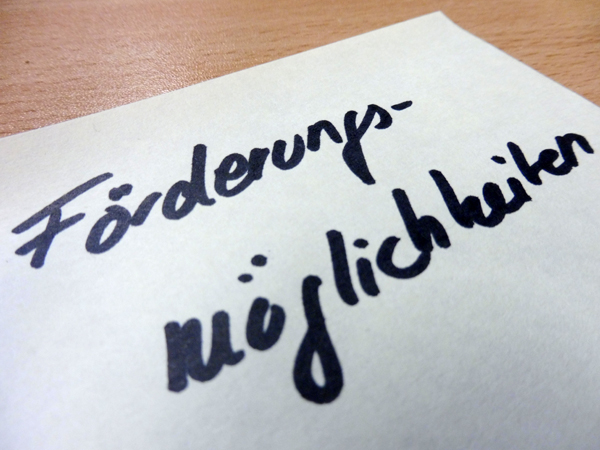 Förderungs-
möglichkeiten